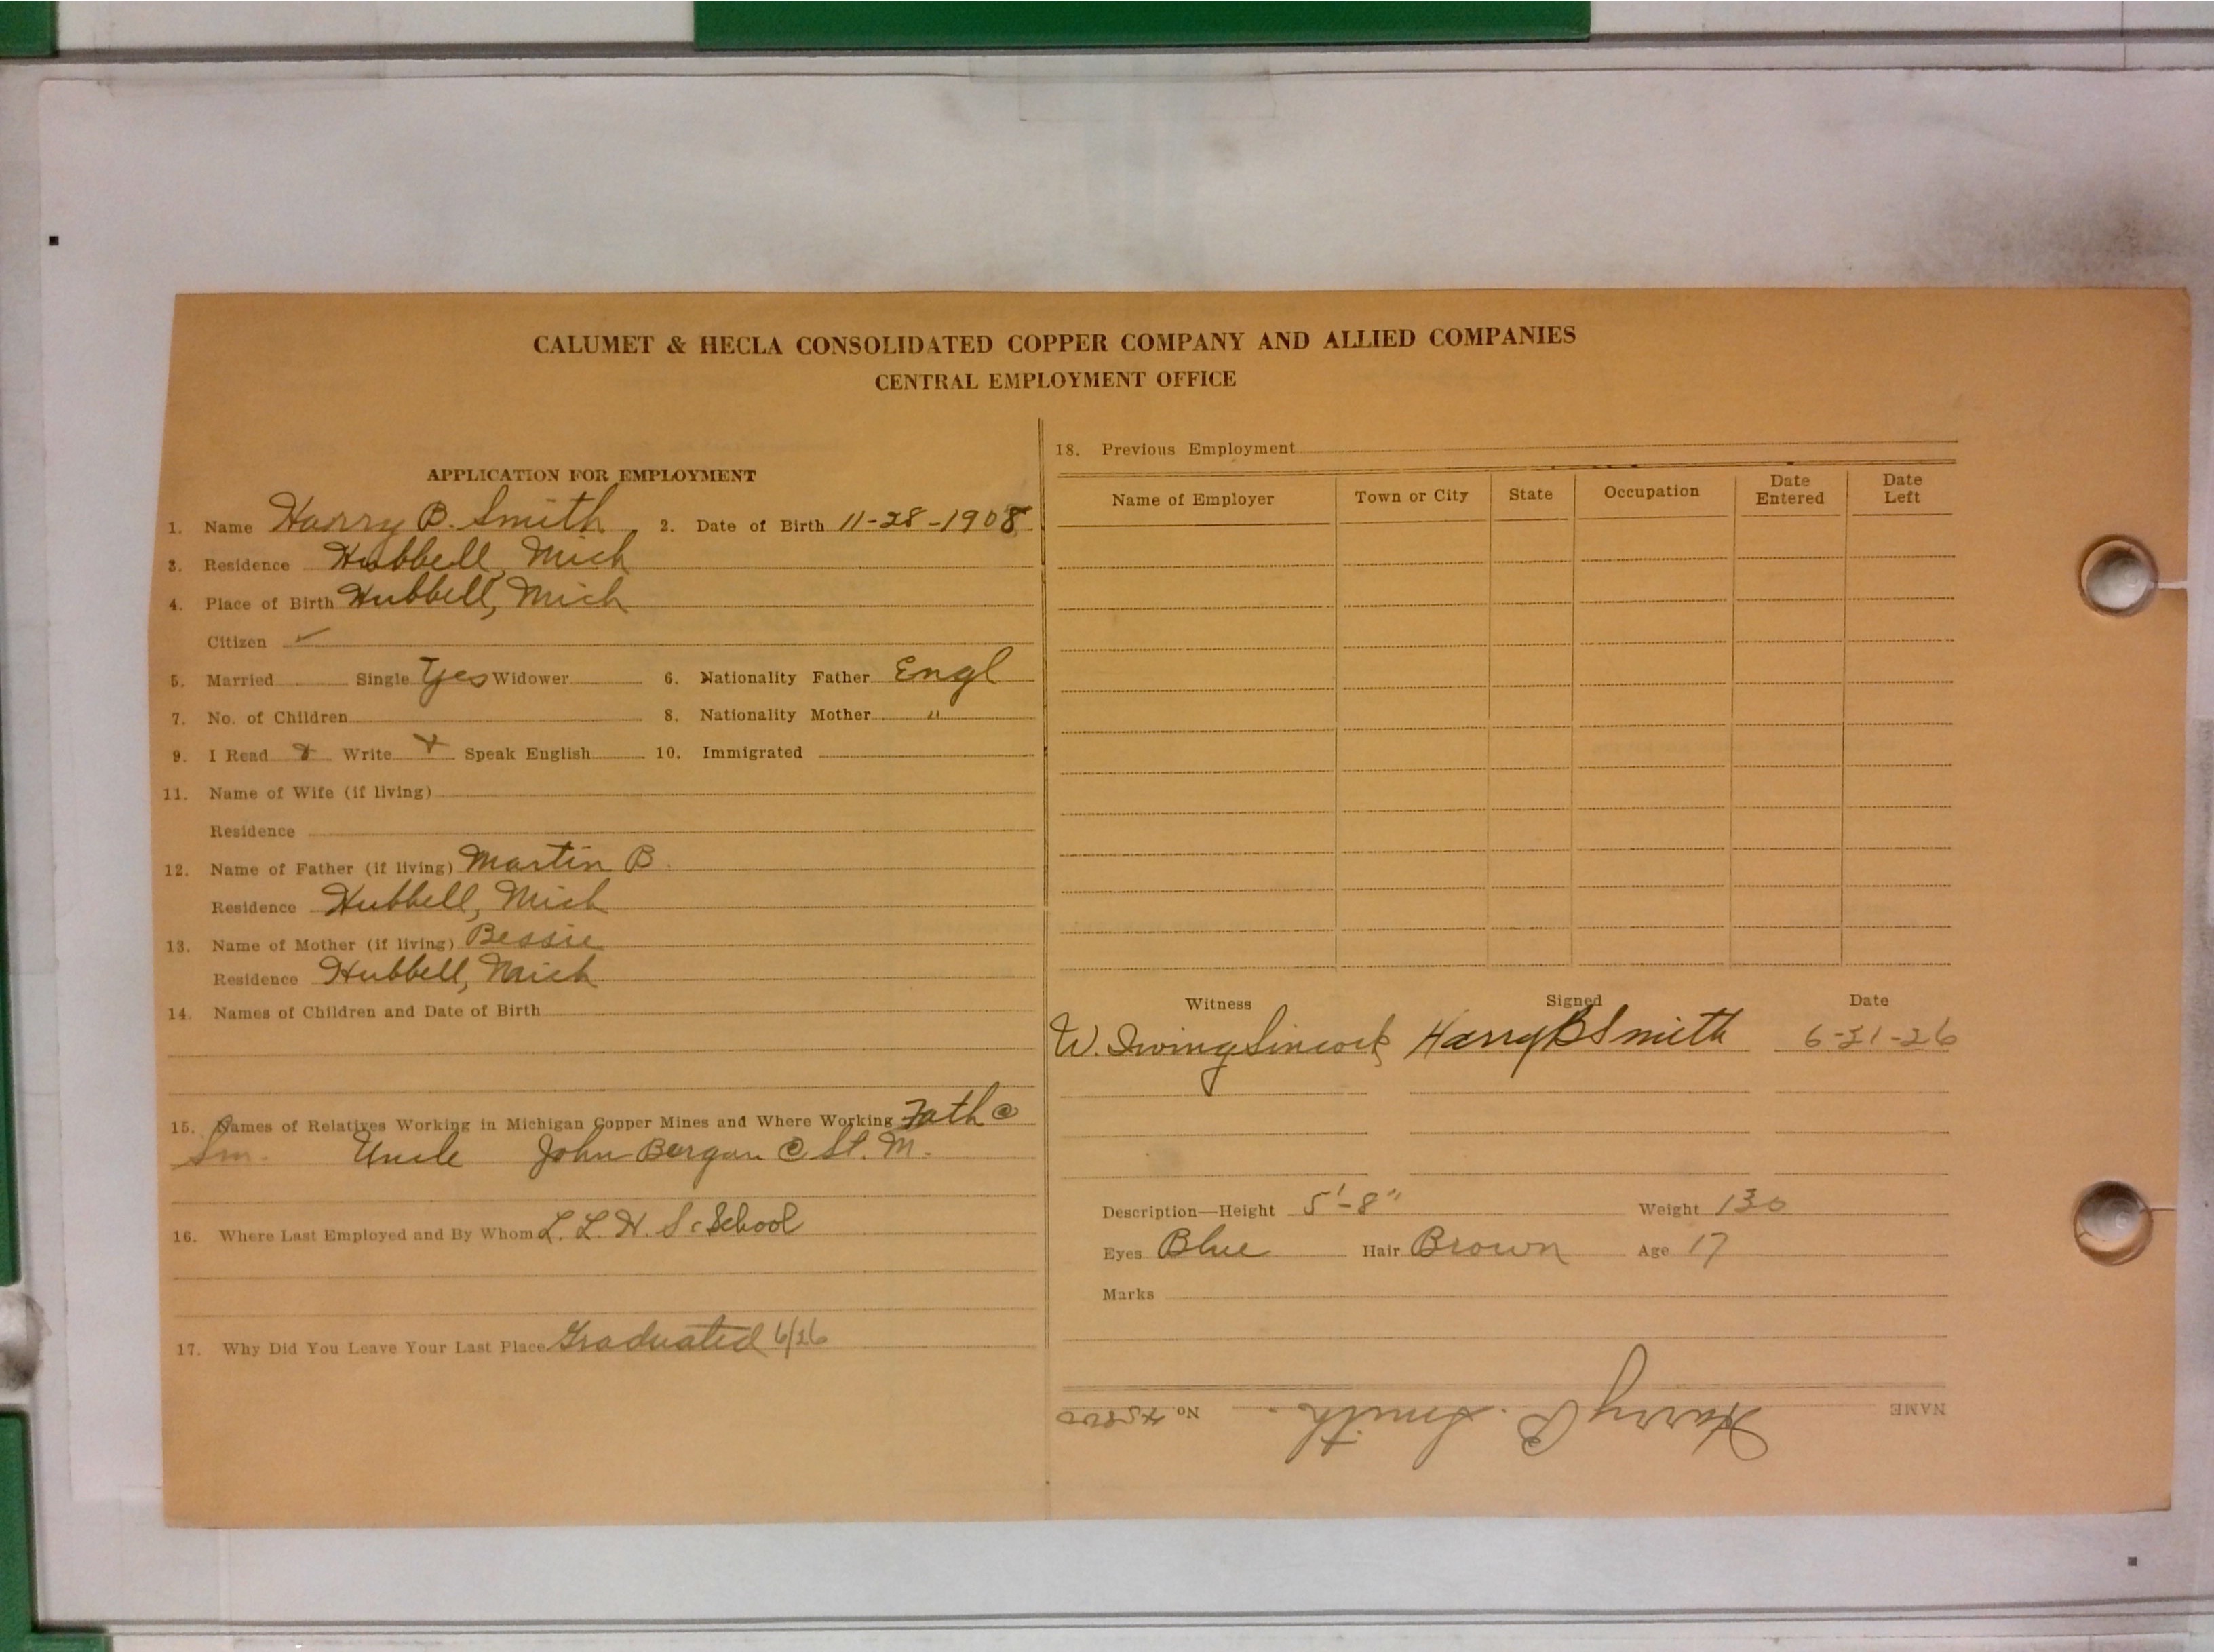 CALUMET & HECLA CONSOLIDATED COPPER COMPANY AND ALLIED COMPANIES
CENTRAL EMPLOYMENT OFFICE
APPLICATION FOR EMPLOYMENT
1. Name Harry B. Smith 2. Date of Birth 11-28-1908
3. Residence Hubbell, Mich
4. Place of Birth Hubbell, Mich
Citizen ✓
5. Married Single Yes Widower 6. Nationality Father Engl
7. No. of Children 8. Nationality Mother "
9. I Read + Write + Speak English 10. Immigrated
11. Name of Wife (if living)
Residence
12. Name of Father (if living) Martin B.
Residence Hubbell, Mich
13. Name of Mother (if living) Bessie
Residence Hubbell, Mich
14. Names of Children and Date of Birth
15. Names of Relatives Working in Michigan Copper Mines and Where Working Fath @
Sm. Uncle John Bergan @ St. M.
16. Where Last Employed and By Whom L. L. H. S. School
17. Why Did You Leave Your Last Place Graduated 6/26
18. Previous Employment
Name of Employer Town or City State Occupation Date Entered Date Left
Witness Signed Date
W. Irving Sincock Harry B Smith 6-21-26
Description—Height 5'-8" Weight 130
Eyes Blue Hair Brown Age 17
Marks
NAME Harry B. Smith. No.